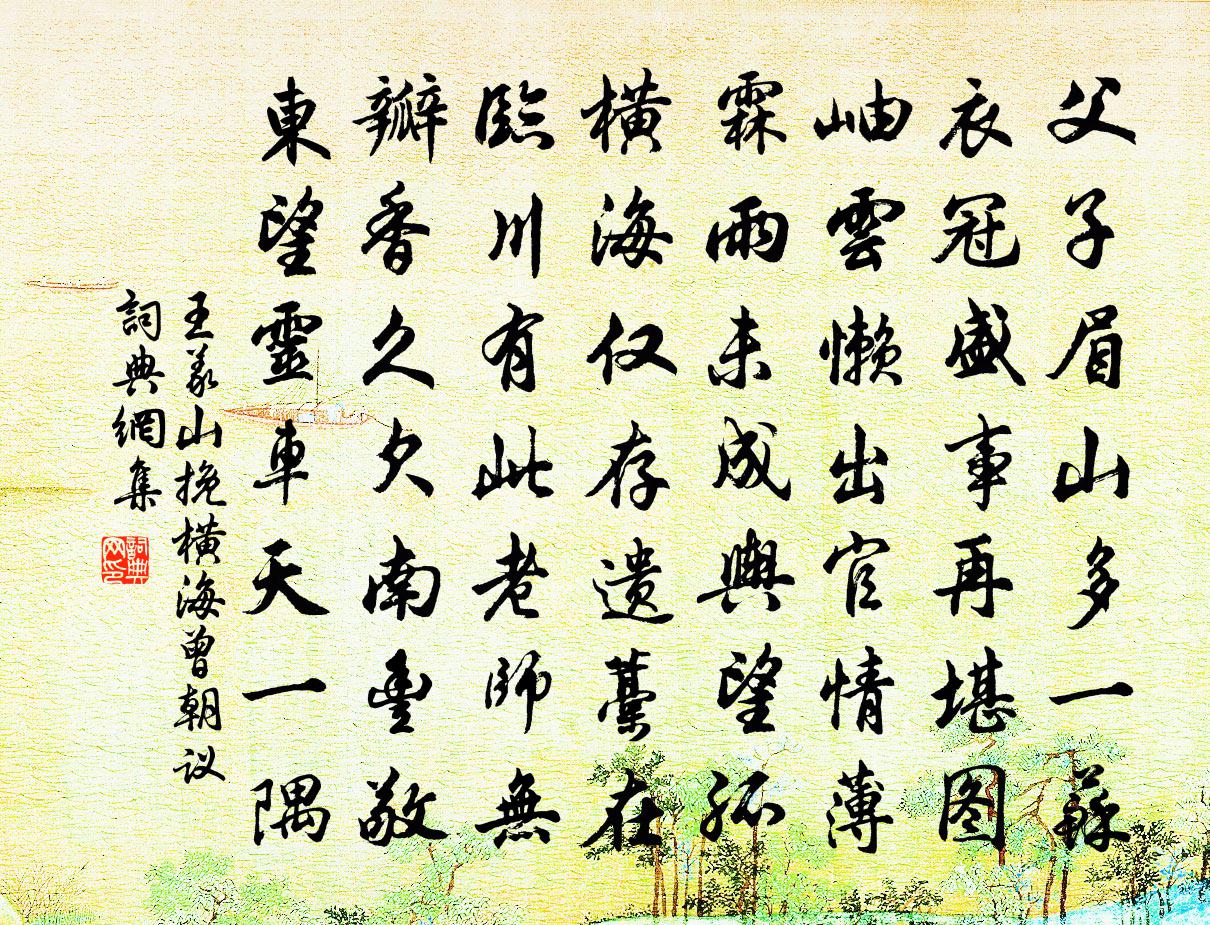 父子眉山多一蘇
衣冠盛事再堪图
岫雲懒出官情薄
霖雨未成輿望孤
橫海仅存遗藁在
臨川有此老師無
瓣香久欠南豐敬
東望靈車天一隅
王義山挽橫海曾朝议
詞典網集
詞典网印